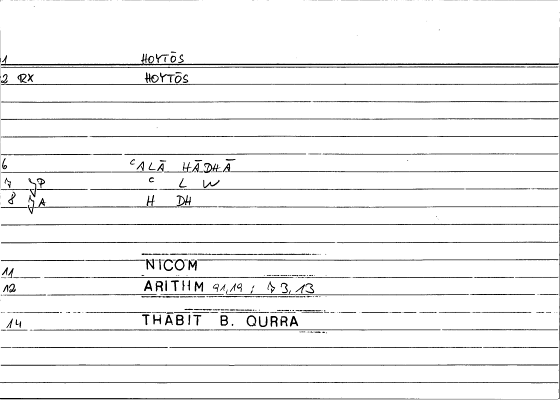 1 HOYTŌS
2 RX HOYTŌS
6 ʿALĀ HĀDHĀ
7 JP ʿ L W
8 JA H DH
11 NICOM
12 ARITHM 91,19 ; 73,13
14 THĀBIT B. QURRA